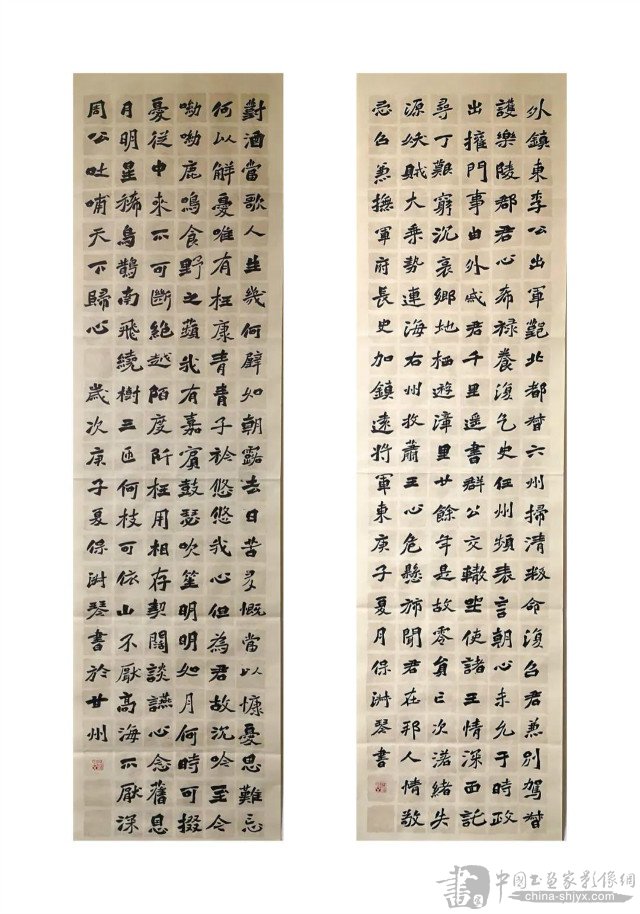 外鎮東李公出軍範北都督六州掃清叛命復召君兼別駕督
護樂陵郡君心希祿養復乞史任州頻表言朝心未允于時政
出擁門事由外戚君千里遥書群公交轍㘴使諸王情深西託
尋丁艱窮沉哀鄉地栖遊漳里廿餘年是故零負已次渃緒失
源妖賊大乘勢連海右州牧蕭王心危懸旆聞君在邪人情敬
忌召兼撫軍府長史加鎮遠將軍東庚子夏月保洲琴書
對酒當歌人生幾何辟如朝露去日苦多慨當以慷憂思難忘
何以解憂唯有杜康青青子衿悠悠我心但為君故沉吟至今
呦呦鹿鳴食野之蘋我有嘉賓鼓瑟吹笙明明如月何時可掇
憂從中來不可斷絕越陌度阡枉用相存契闊談讌心念舊恩
月明星稀烏鵲南飛繞樹三匝何枝可依山不厭高海不厭深
周公吐哺天下歸心 歲次庚子夏保洲琴書於甘州
中国书画家影像網
china-shjyx.com